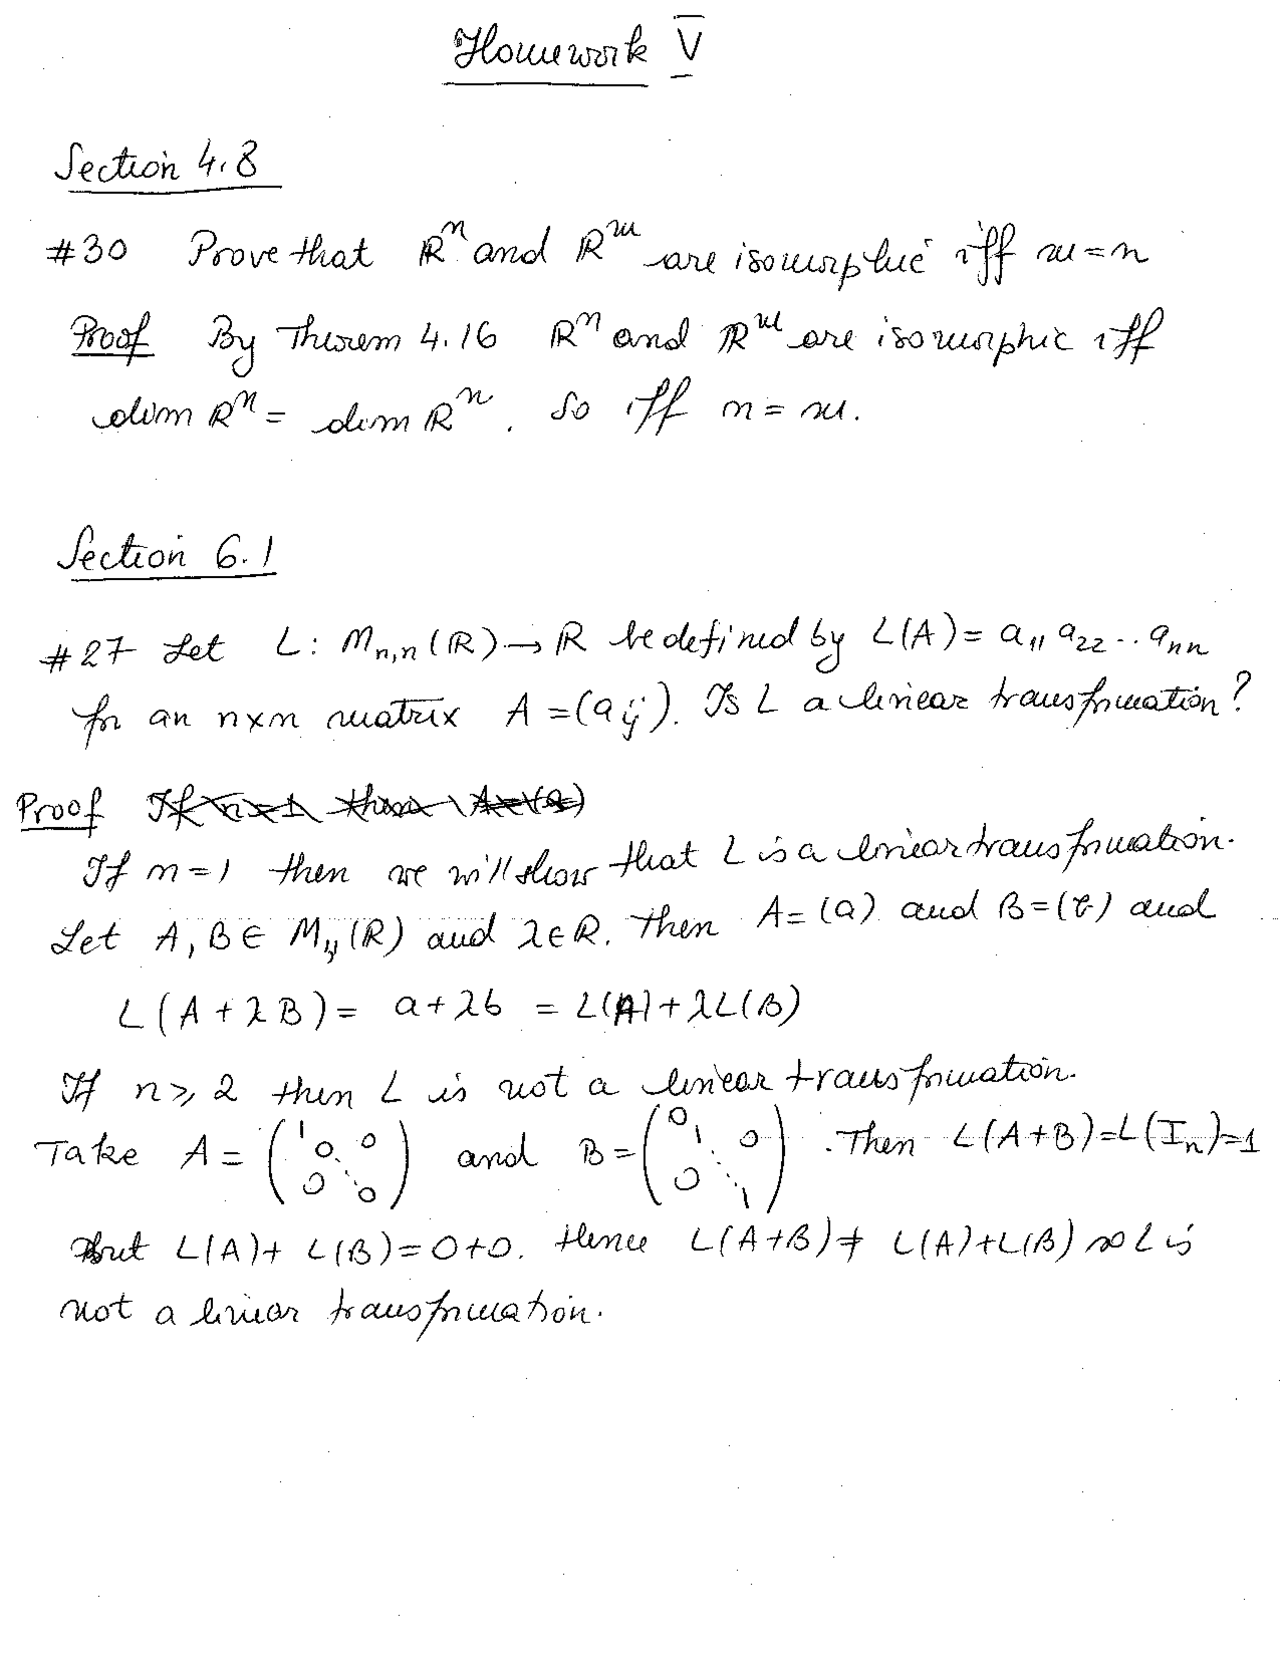 Homework V
Section 4.8
#30 Prove that ℝⁿ and ℝᵐ are isomorphic iff m=n
Proof By Theorem 4.16 ℝⁿ and ℝᵐ are isomorphic iff
dim ℝⁿ = dim ℝᵐ. So iff n = m.
Section 6.1
#27 Let L: Mₙ,ₙ(ℝ) → ℝ be defined by L(A) = a₁₁ a₂₂ .. aₙₙ
for an n×n matrix A = (aᵢⱼ). Is L a linear transformation?
Proof If n=1 then A=(a)
If n=1 then we will show that L is a linear transformation.
Let A, B ∈ M₁,₁(ℝ) and λ∈ℝ. Then A = (a) and B = (b) and
L(A + λB) = a + λb = L(A) + λL(B)
If n ⩾ 2 then L is not a linear transformation.
Take A = (1 0 ⋱ 0 0 0) and B = (0 1 ⋱ 0 0 1). Then L(A+B)=L(Iₙ)=1
but L(A) + L(B) = 0+0. Hence L(A+B) ≠ L(A)+L(B) so L is
not a linear transformation.